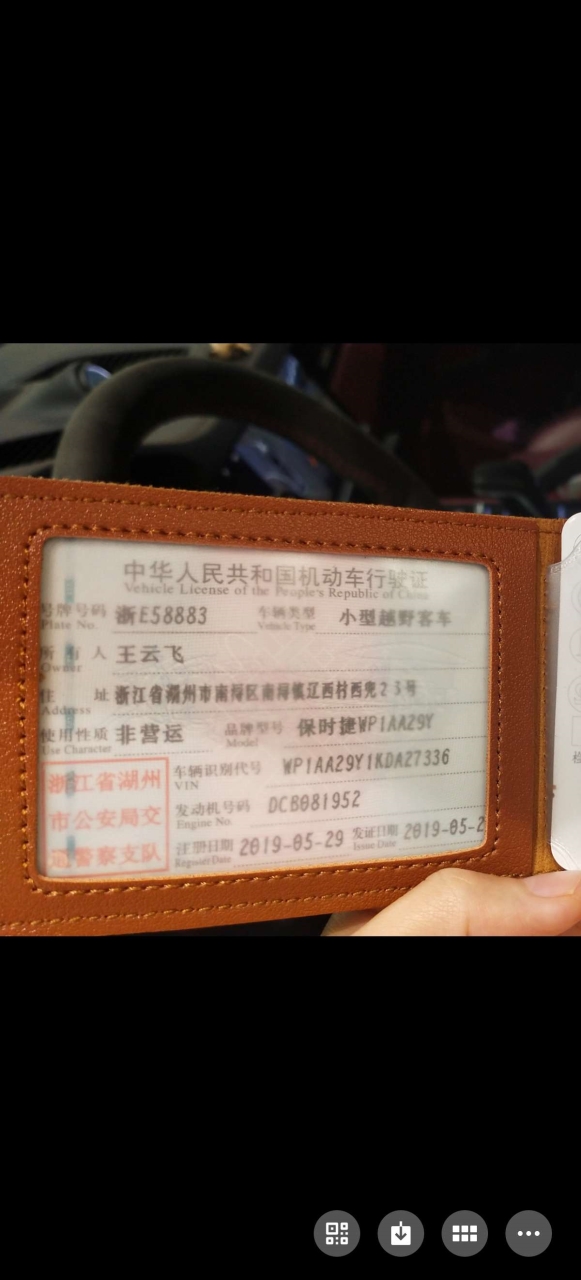 中华人民共和国机动车行驶证
Vehicle License of the People's Republic of China
号牌号码 浙E58883 车辆类型 小型越野客车
Plate No. Vehicle Type
所有人 王云飞
Owner
住址 浙江省湖州市南浔区南浔镇辽西村西兜23号
Address
使用性质 非营运 品牌型号 保时捷WP1AA29Y
Use Character Model
浙江省湖州
市公安局交
通警察支队
车辆识别代号 WP1AA29Y1KDA27336
VIN
发动机号码 DCB081952
Engine No.
注册日期 2019-05-29 发证日期 2019-05-2
Register Date Issue Date
检